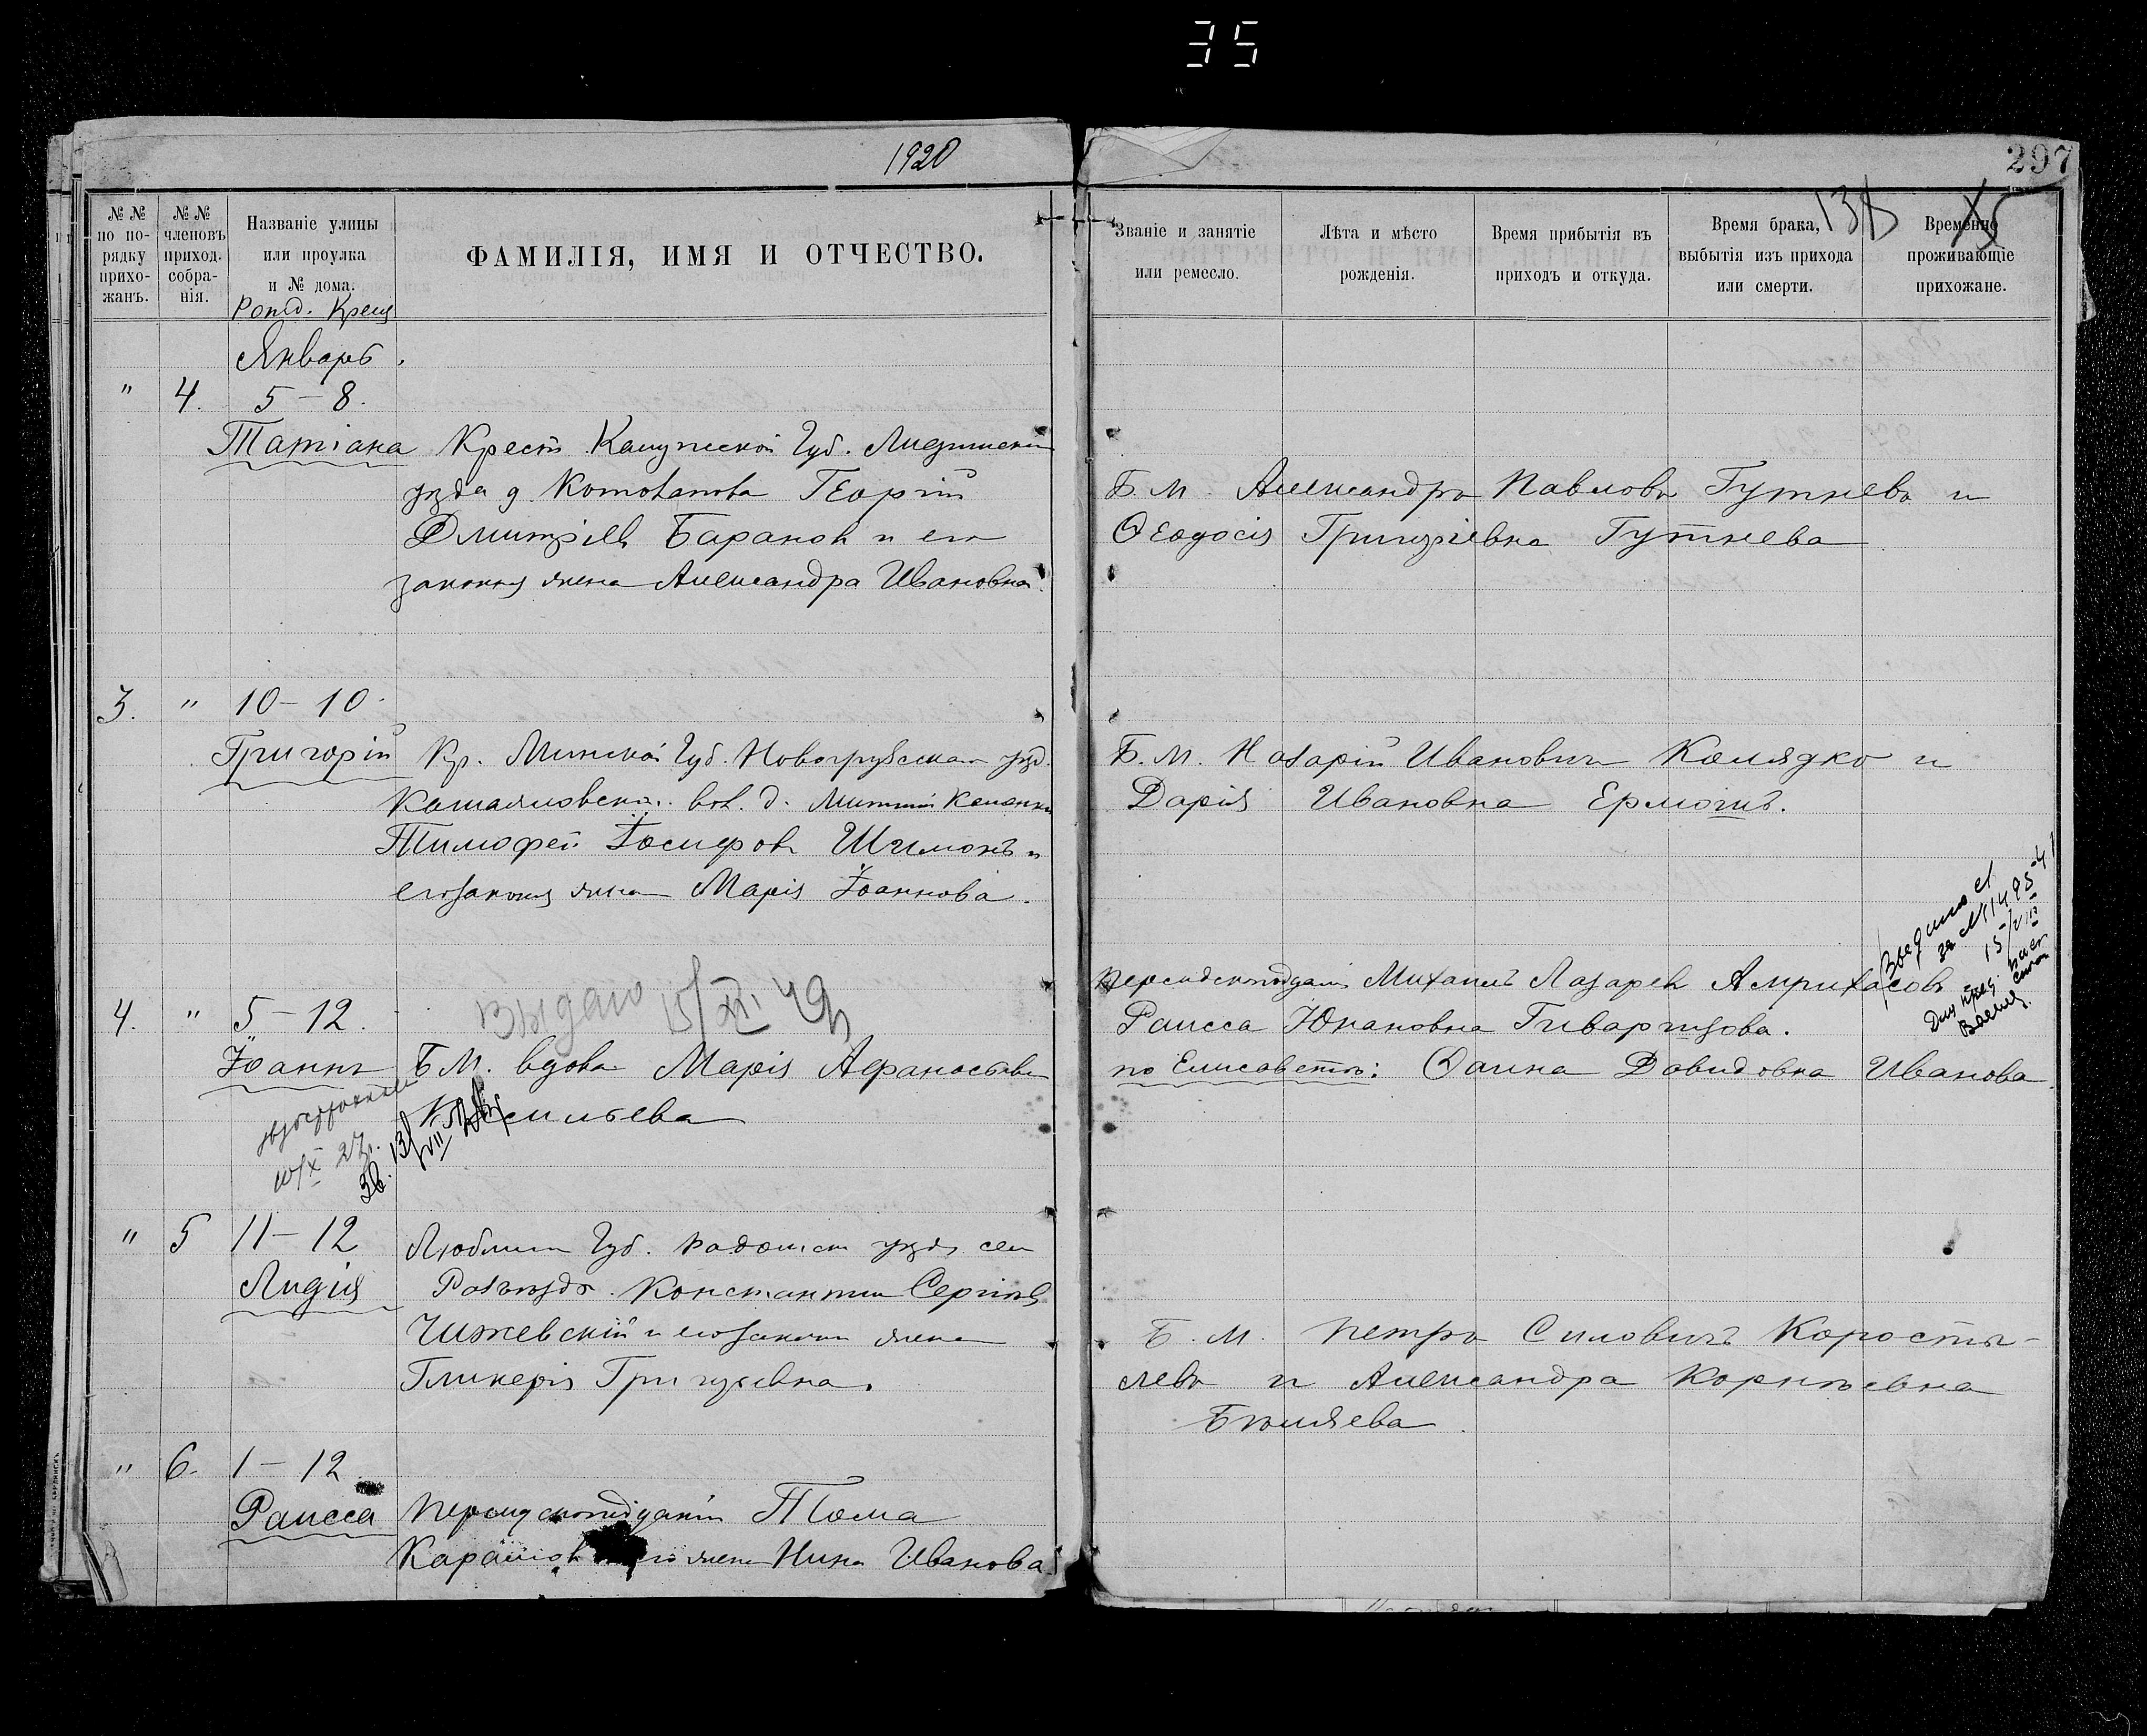 35
1920
№ № по по-рядку прихо-жанъ.
№ № членовъ приход. собра-нія.
Названіе улицы или проулка и № дома.
Рожд. Крещ
ФАМИЛІЯ, ИМЯ И ОТЧЕСТВО.
Январь.
" 4. 5-8.
Татіана Крест. Калужской Губ.
уѣзда д. Георгій
Дмитріев Баранов и его
законная жена Александра Ивановна.
3. " 10-10.
Григорій Кр. Минской Губ. Новогрудскаго уѣзд.
вол. д.
Тимофей Іосифовъ Шимонъ и
его законная жена Марія Іоаннова.
Выдано 15/XI 49
4. " 5-12.
Іоаннъ Б.М. вдова Марія Афанасьева
Васильева
10/X 27г.
Зв. 13/VII
" 5 11-12 Люблин Губ. уѣзда сел
Лидія Константин Сергіевъ
Чижевскій и его законная жена
Гликерія Григорьевна.
" 6. 1-12
Раисса персидскоподданный Тома
его жена Нина Иванова
297
138
15
Званіе и занятіе или ремесло.
Лѣта и мѣсто рожденія.
Время прибытія въ приходъ и откуда.
Время брака, выбытія изъ прихода или смерти.
Временно проживающіе прихожане.
Б. М. Александръ Павловъ Гутневъ и
Ѳеодосія Григорьевна Гутнева
Б. М. Назарій Ивановичъ Колядко и
Дарія Ивановна
персидскоподдан Михаилъ Лазарев Амрихасовъ
Раисса Юнановна Гиваргизова.
по Елисаветѣ: Давидовна Иванова.
за № 1495-41
15/VIII
Б. М. Петръ Силовичъ Коросты-
левъ и Александра Корнѣевна
Бѣляева.